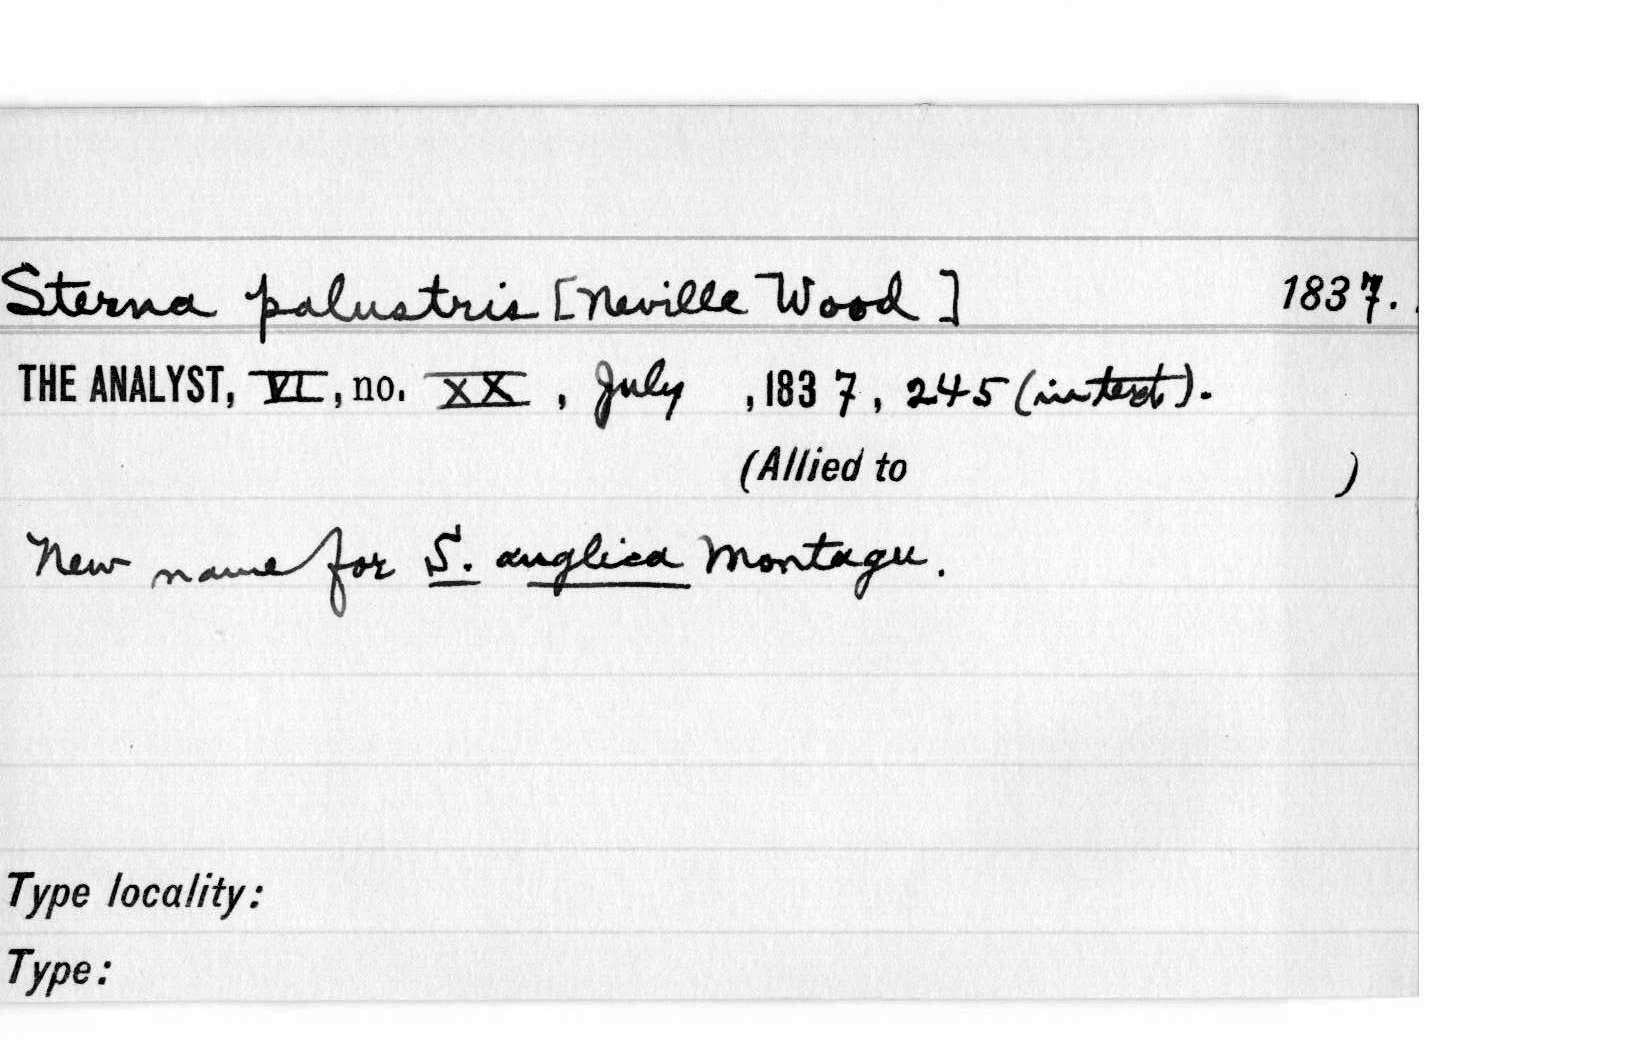 Sterna palustris [Neville Wood] 1837.
THE ANALYST, VI, no. XX, July, 1837, 245 (in text).
(Allied to )
New name for S. anglica Montagu.
Type locality:
Type: